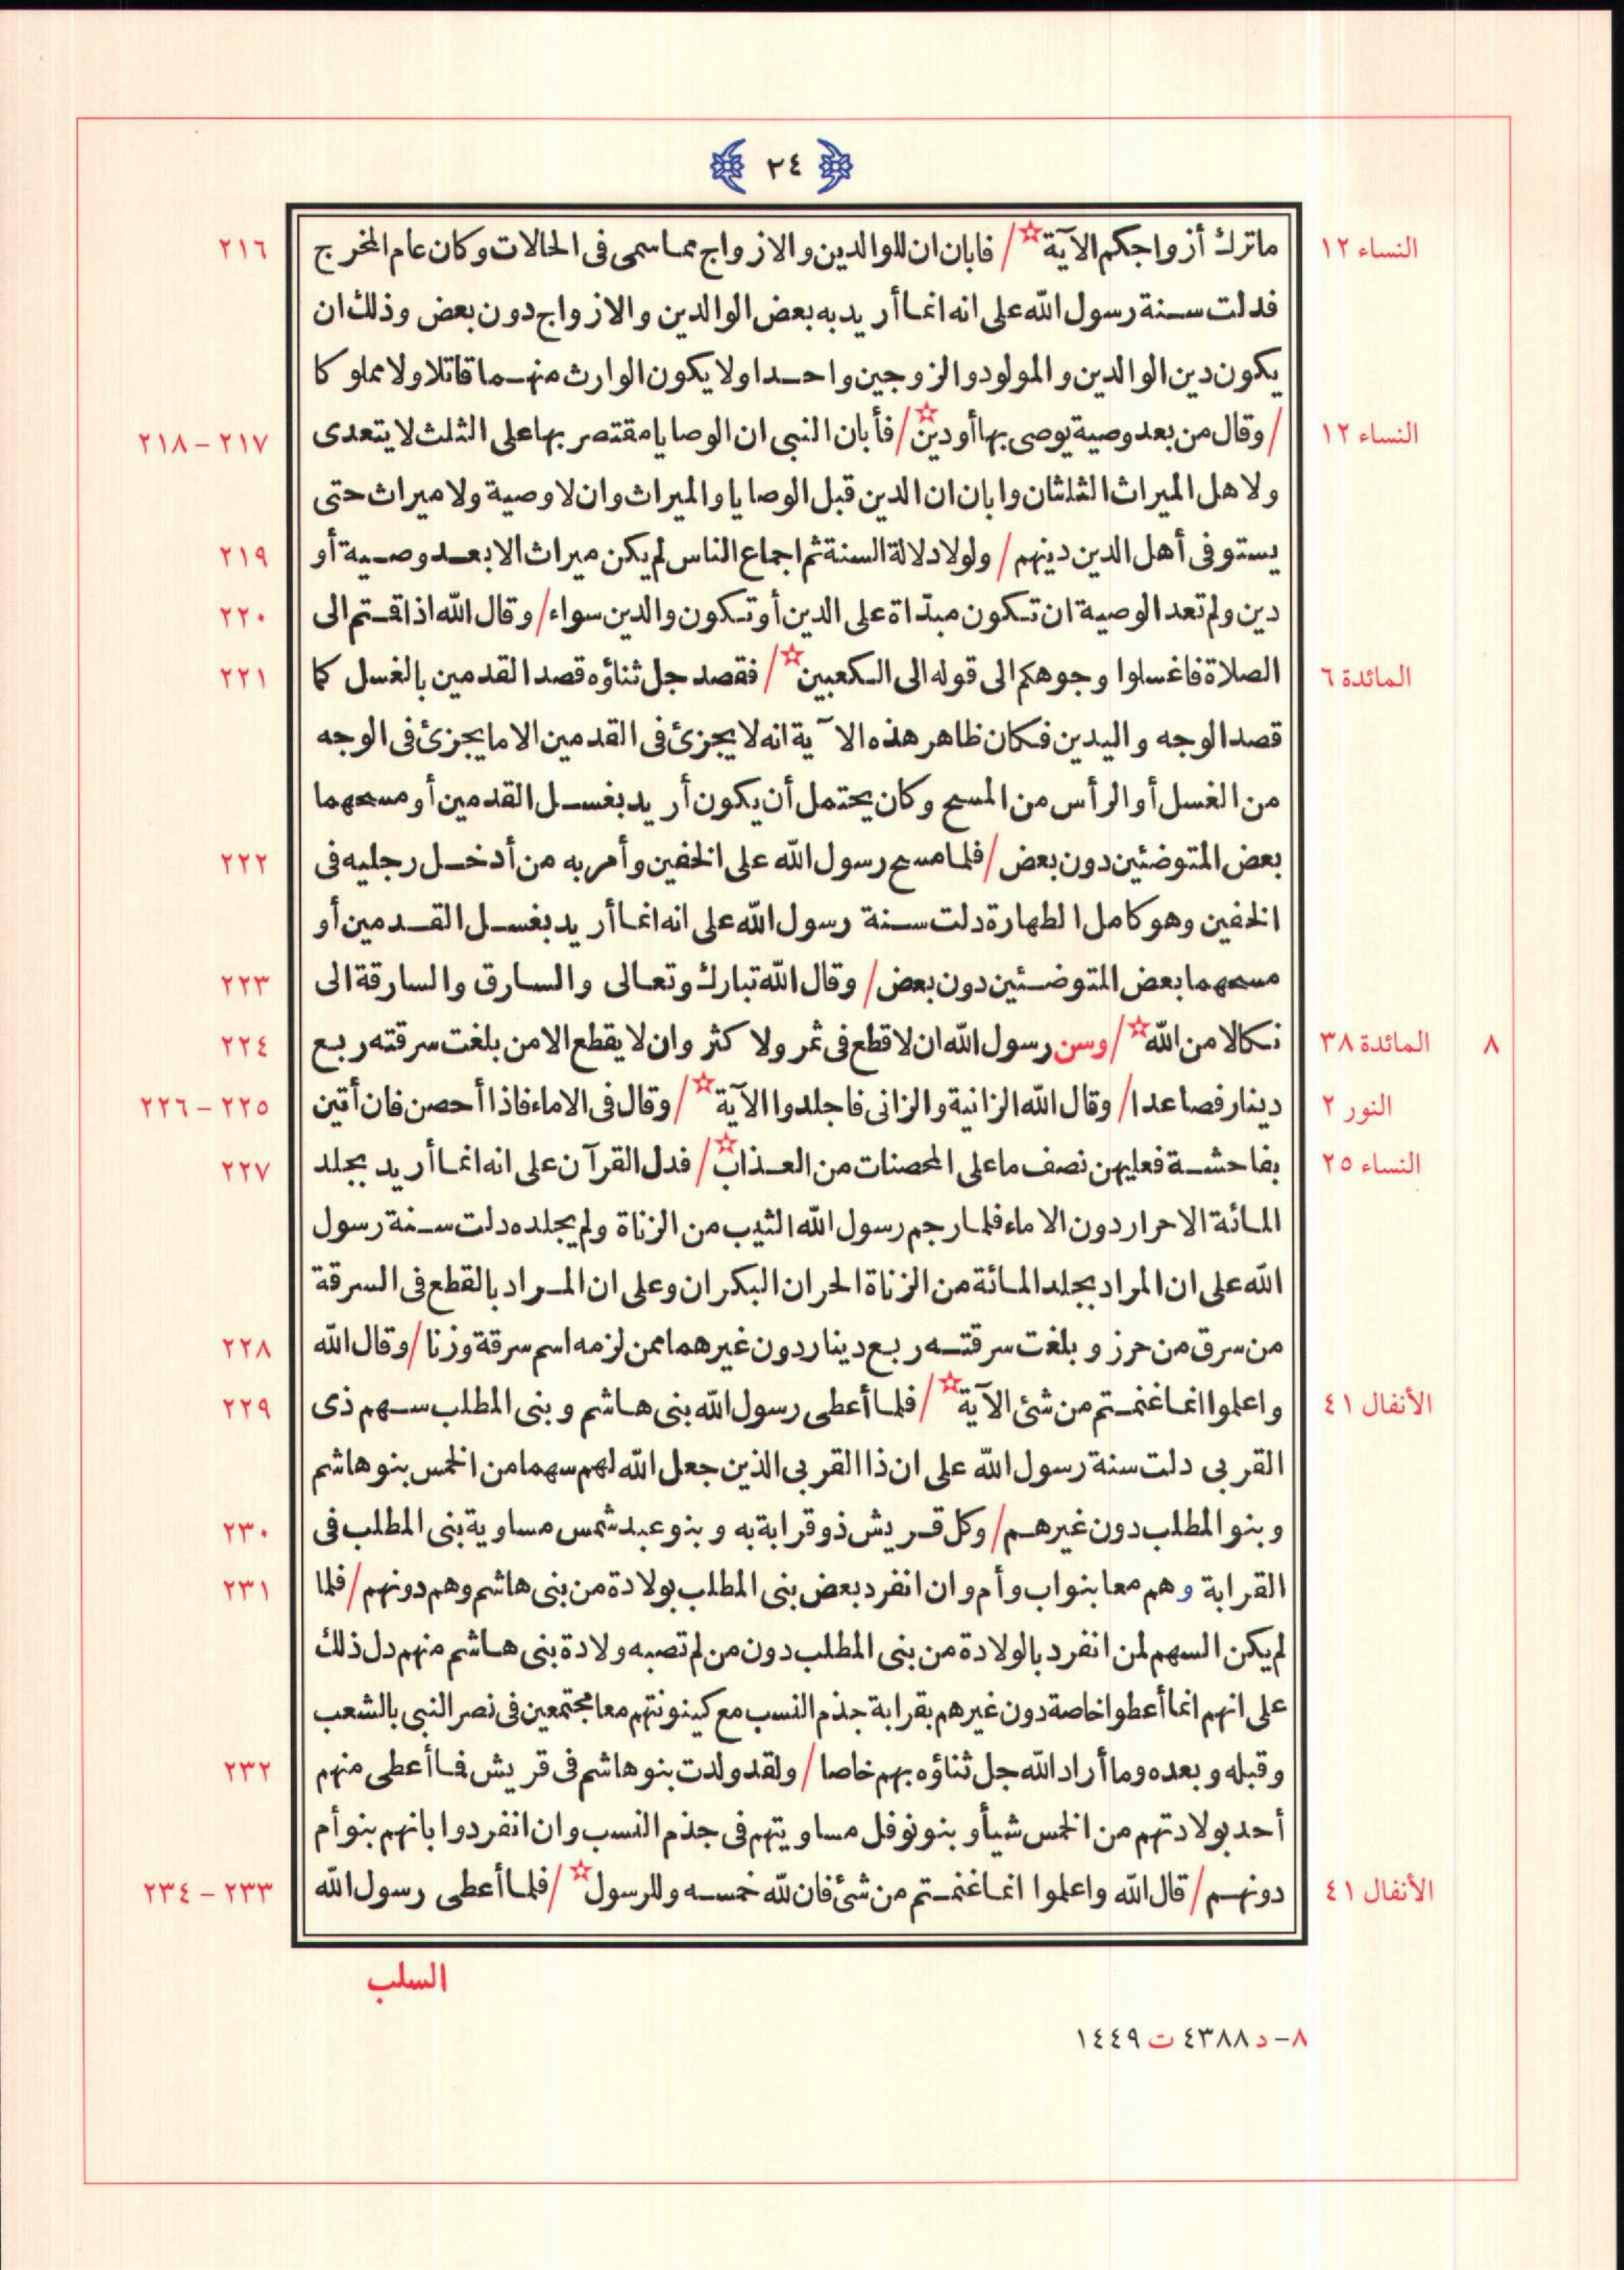 ٢٤
النساء ١٢ ماترك أزواجكم الآية☆/ فابان ان للوالدين والازواج مما سمى فى الحالات وكان عام المخرج ٢١٦
فدلت سنة رسول الله على انه انما أريد به بعض الوالدين والازواج دون بعض وذلك ان
يكون دين الوالدين والمولود والزوجين واحدا ولا يكون الوارث منهما قاتلا ولا مملوكا
النساء ١٢ /وقال من بعد وصية يوصى بها أودين☆/ فأبان النبى ان الوصايا مقتصر بها على الثلث لا يتعدى ٢١٧–٢١٨
ولاهل الميراث الثلثان وابان ان الدين قبل الوصايا والميراث وان لا وصية ولا ميراث حتى
يستوفى أهل الدين دينهم/ ولولا دلالة السنة ثم اجماع الناس لم يكن ميراث الا بعد وصية أو ٢١٩
دين ولم تعد الوصية ان تكون مبتداة على الدين أو تكون والدين سواء/ وقال الله اذا قمتم الى ٢٢٠
المائدة ٦ الصلاة فاغسلوا وجوهكم الى قوله الى الكعبين☆/ فقصد جل ثناؤه قصد القدمين بالغسل كما ٢٢١
قصد الوجه واليدين فكان ظاهر هذه الآية انه لا يجزئ فى القدمين الا ما يجزئ فى الوجه
من الغسل أو الرأس من المسح وكان يحتمل أن يكون أريد بغسل القدمين أو مسحهما
بعض المتوضئين دون بعض/ فلما مسح رسول الله على الخفين وأمر به من أدخل رجليه فى ٢٢٢
الخفين وهو كامل الطهارة دلت سنة رسول الله على انه انما أريد بغسل القدمين أو
مسحهما بعض المتوضئين دون بعض/ وقال الله تبارك وتعالى والسارق والسارقة الى ٢٢٣
٨ المائدة ٣٨ نكالا من الله☆/ وسن رسول الله ان لا قطع فى ثمر ولا كثر وان لا يقطع الا من بلغت سرقته ربع ٢٢٤
النور ٢ دينار فصاعدا/ وقال الله الزانية والزانى فاجلدوا الآية☆/ وقال فى الاماء فاذا أحصن فان أتين ٢٢٥–٢٢٦
النساء ٢٥ بفاحشة فعليهن نصف ما على المحصنات من العذاب☆/ فدل القرآن على انه انما أريد بجلد ٢٢٧
المائة الاحرار دون الاماء فلما رجم رسول الله الثيب من الزناة ولم يجلده دلت سنة رسول
الله على ان المراد بجلد المائة من الزناة الحران البكران وعلى ان المراد بالقطع فى السرقة
من سرق من حرز وبلغت سرقته ربع دينار دون غيرهما ممن لزمه اسم سرقة وزنا/ وقال الله ٢٢٨
الأنفال ٤١ واعلموا انما غنمتم من شئ الآية☆/ فلما أعطى رسول الله بنى هاشم وبنى المطلب سهم ذى ٢٢٩
القربى دلت سنة رسول الله على ان ذا القربى الذين جعل الله لهم سهما من الخمس بنو هاشم
وبنو المطلب دون غيرهم/ وكل قريش ذو قرابة به وبنو عبد شمس مساوية بنى المطلب فى ٢٣٠
القرابة وهم معا بنو اب وأم وان انفرد بعض بنى المطلب بولادة من بنى هاشم وهم دونهم/ فلما ٢٣١
لم يكن السهم لمن انفرد بالولادة من بنى المطلب دون من لم تصبه ولادة بنى هاشم منهم دل ذلك
على انهم انما أعطوا خاصة دون غيرهم بقرابة جذم النسب مع كينونتهم معا مجتمعين فى نصر النبى بالشعب
وقبله وبعده وما أراد الله جل ثناؤه بهم خاصا/ ولقد ولدت بنو هاشم فى قريش فما أعطى منهم ٢٣٢
أحد بولادتهم من الخمس شيأ وبنو نوفل مساويتهم فى جذم النسب وان انفردوا بانهم بنو أم
الأنفال ٤١ دونهم/ قال الله واعلموا انما غنمتم من شئ فان لله خمسه وللرسول☆/ فلما أعطى رسول الله ٢٣٣–٢٣٤
السلب
٨– د ٤٣٨٨ ت ١٤٤٩